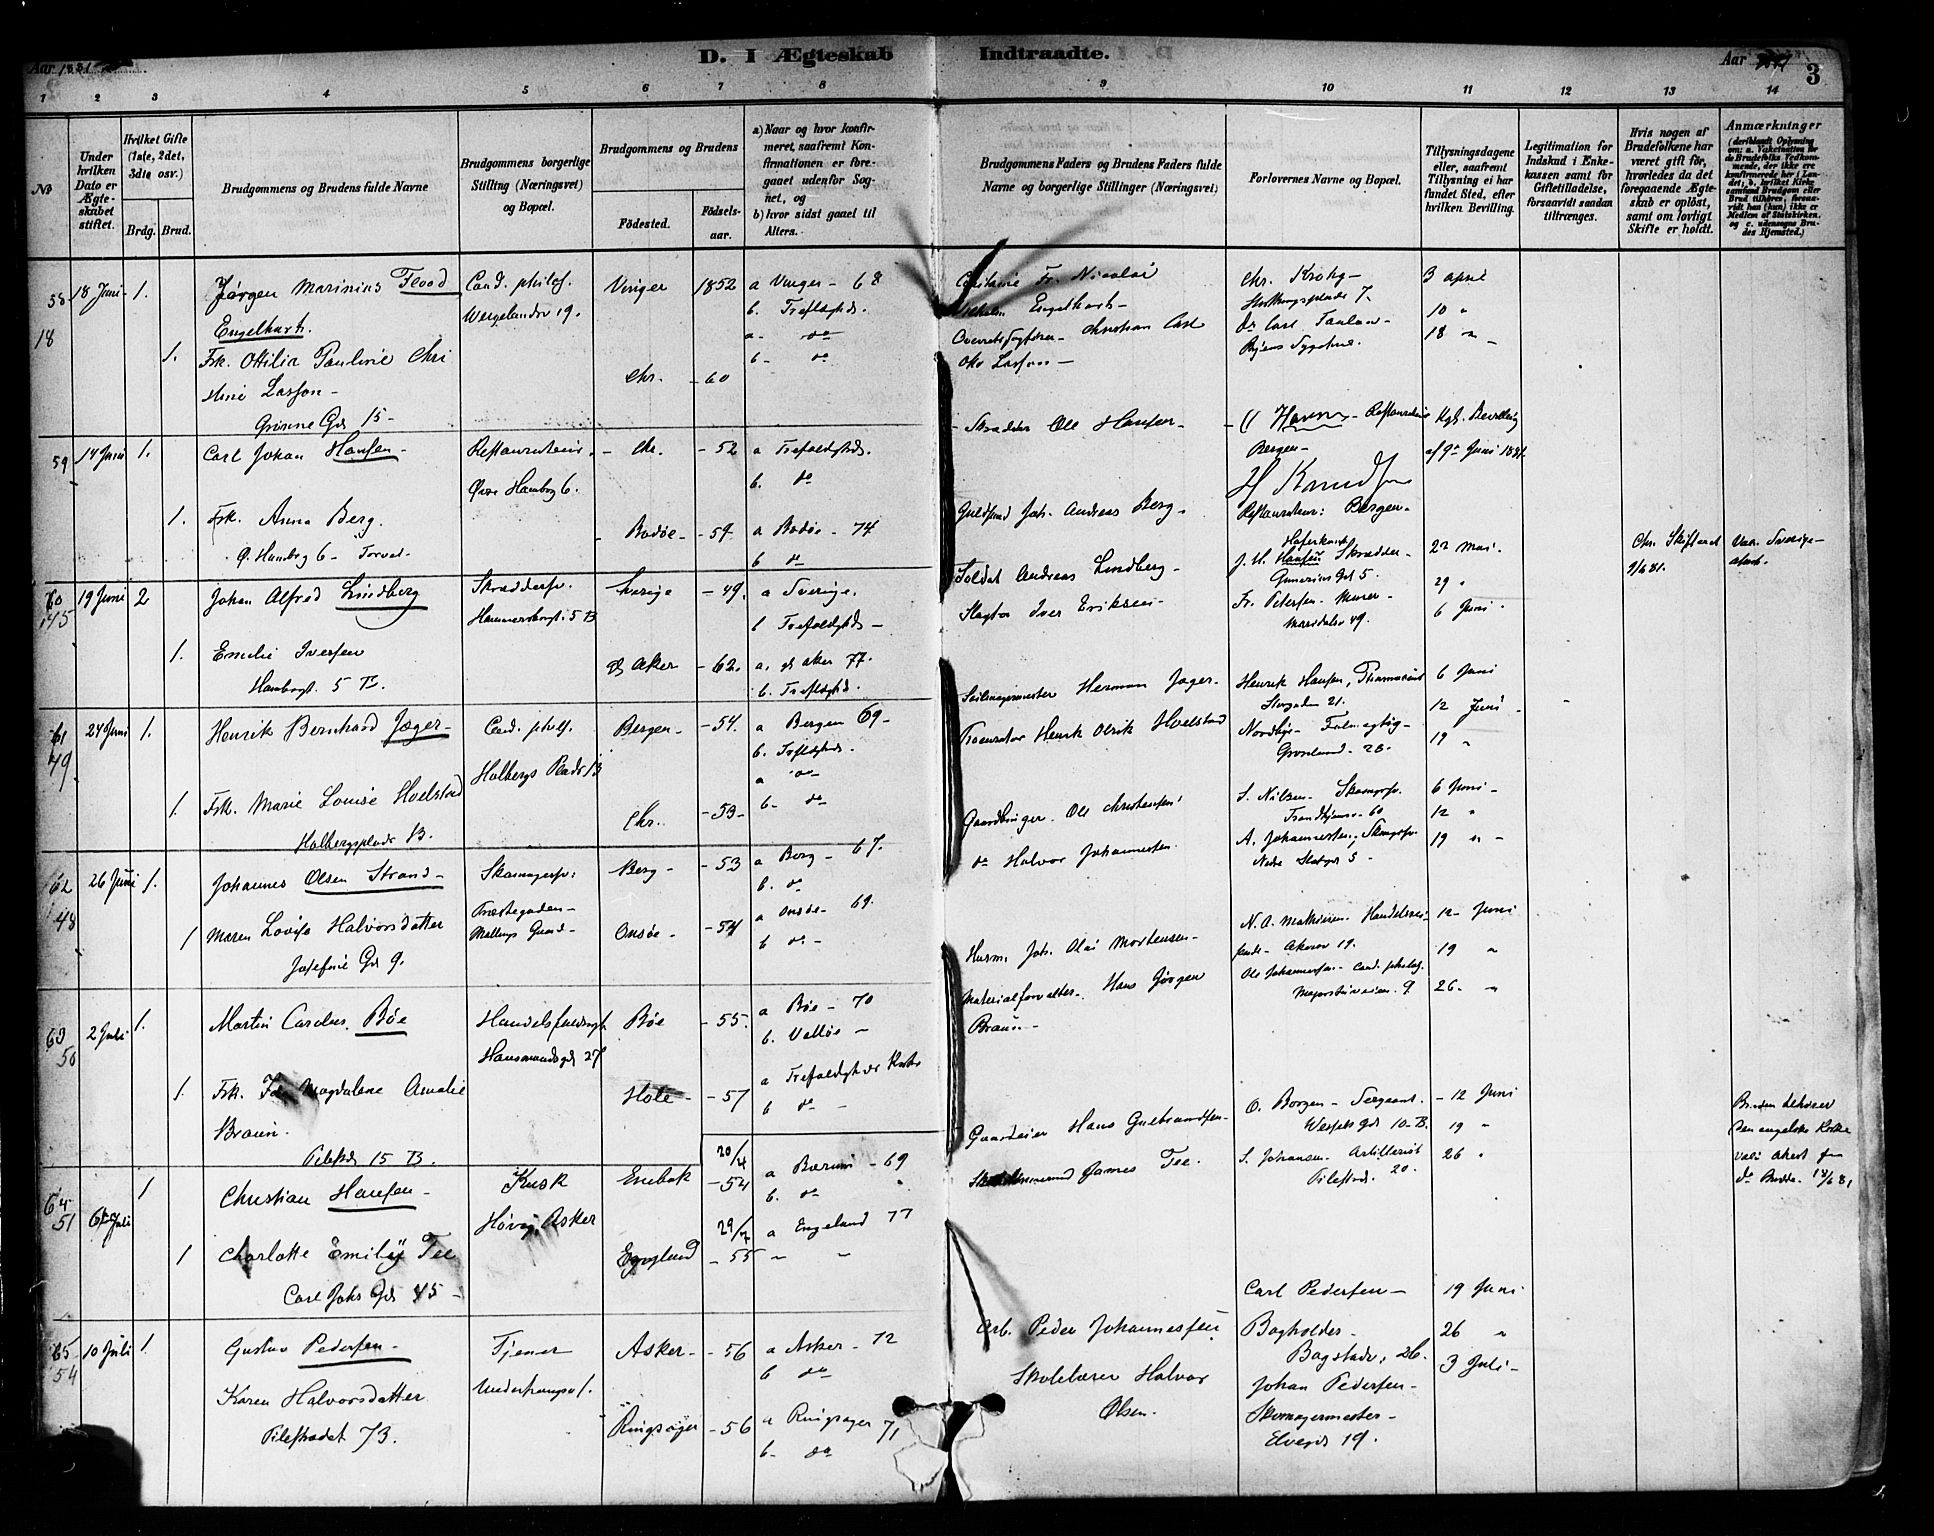 Aar 1881
D. I Ægteskab Indtraadte.
Aar
3
1 2 3 4 5 6 7 8 9 10 11 12 13 14
No
Under hvilken Dato er Ægteskabet stiftet.
Hvilket Gifte (1ste, 2det, 3die osv.)
Brdg. Brud.
Brudgommens og Brudens fulde Navne
Brudgommens borgerlige Stilling (Næringsvei) og Bopæl.
Brudgommens og Brudens
Fødested.
Fødsels-aar.
a) Naar og hvor konfirmeret, saafremt Konfirmationen er foregaaet udenfor Sognet, og
b) hvor sidst gaaet til Alters.
Brudgommens Faders og Brudens Faders fulde Navne og borgerlige Stillinger (Næringsvei)
Forlovernes Navne og Bopæl.
Tillysningsdagene eller, saafremt Tillysning ei har fundet Sted, efter hvilken Bevilling.
Legitimation for Indskud i Enkekassen samt for Giftetilladelse, forsaavidt saadan tiltrænges.
Hvis nogen af Brudefolkene har været gift før, hvorledes da det foregaaende Ægteskab er opløst, samt om lovligt Skifte er holdt.
Anmærkninger
(deriblandt Oplysning om: a. Vakcination for de Brudefolks Vedkommende, der ikke ere konfirmerede her i Landet; b. hvilket Kirkesamfund Brudgom eller Brud tilhører, forsaavidt han (hun) ikke er Medlem af Statskirken, og c. udensogns Brudes Hjemsted.)
58
18
18 Juni 1.
Jørgen Marinius Flood
Engelhart.
1.
Frk. Ottilia Pauline Chri
stine Lasson
Grønne Gd 15
Cand. philos.
Wergelandsv 19.
Vinger 1852
Chr. 60
a Vinger 68
b. Trefoldghds.
a do
b do
Capitaine Fr. Nicolai
Wilhelm Engelhart
Christian Carl
Otto Lasson
Chr. Krohg
Stortingsplads 7.
Dr Carl
3 april
10 "
18 "
59
14 Juni 1.
Carl Johan Hansen
1.
Frk. Anna Berg.
Ø. Hambrg 6 Torvet
Restaurateur.
Øvre Hambrg 6.
Chr. 52
Bodøe 59
a Trefoldghds.
b. do
a Bodøe 74
b do
Skrædder Ole Hansen
Guldsmed Joh. Andreas Berg.
Restaurateur
Bergen
H Knudsen
Restaurateur: Bergen.
Kgl. Bevilling
af 9de Juni 1881.
60
45
19 Juni 2
Johan Alfred Lindberg
1.
Emilie Iversen
Hambrgt. 5 B.
Skræddersv.
Hammersborgt. 5 B
Sverige 49.
Aker 62.
a Sverige.
b Trefoldghds
a. Aker 77.
b. Trefoldghds.
Soldat Andreas Lindberg
Slagter Iver Eriksen
J. H. Hansen Skrædder
Gunerius Gd 5.
Fr. Petersen. Murer
Maridalsv 49.
22 Mai.
29 "
6 Juni
Chr. Skifteret
9/6 81.
Vac. Sverige-
attest.
61
49
24 Juni 1.
Henrik Bernhard Jæger
1.
Frk. Marie Louise Hoelstad
Holbergsplads B.
Cand. phil.
Holbergs Plads B
Bergen 54.
Chr. 53
a Bergen 69
b. Trefoldghds.
a do
b. do
Seilmagermester Herman Jæger.
Procurator Henrik Ulrik Hoelstad
Henrik Hansen, Pharmaceut
Storgaden 21.
Nordbye Fuldmægtig
Grønland 28.
6 Juni
12 Juni
19 "
62
48
26 Juni 1.
Johannes Olsen Strand
1
Maren Lovise Halvorsdatter
Josefine Gd 9.
Skomagersv:
Præstegaden
Mallings Gaard
Berg 53
Onsøe 54
a Berg 67.
b. do
a Onsøe 69.
b do
Gaardbruger Ole Christensen
do Halvor Johannesen
S. Nilsen Skomgrsv.
Trondhjemsv. 60
A. Johannesen, Skomgrsv.
Nedre Slotsgd 5
6 Juni
12 "
19 "
63
50
2 Juli 1.
Martin Carelius Bøe
1.
Frk. Magdalene Amalie
Braun.
Pilestr 15 B.
Handelsfuldmgt
Hansmandsgd 27
Bøe 55.
Hole 57
a Bøe 70
b. Valløe
a Trefoldghds Kirke
b do
Husm. Joh. Olai Mortensen
Materialforvalter. Hans Jørgen
Braun
N. A. Mathisen. Handelsrei-
sende Akersv 19.
Ole Johannesen Cand. philolog.
Majorstuveien 9.
12 Juni
19 "
26 "
64
51
6te Juli 1
Christian Hansen
1
Charlotte Emily Tee
Carl Johs Gd 45
Kusk
Høvig, Asker
Enebak
20/4
54
England
29/7
55
a Bærum 69
b. do
a Engeland 77
" "
Gaardeier Hans Gulbrandsen
James Tee.
O. Borgen Sergeant.
Wessels Gd 10 B.
S. Johansen Artillerist
Pilestræd. 20.
12 Juni
19 "
26 "
Bruden tilhører
den engelske Kirke
Vac. attest fra
do 14/6 81
65
54
10 Juli 1.
Gustav Pedersen
Karen Halvorsdatter
Pilestrædet 73.
Tjener
Underhaugsv 1.
Asker 56
Ringsager 56
a Asker 72
b do
a Ringsager 71
b. do
Arb. Peder Johannesen
Skolelærer Halvor
Olsen.
Carl Pedersen
Bogholder
Bogstadv. 26.
Johan Pedersen
Skomagermester
Elvegd 19.
19 Juni
26 "
3 Juli